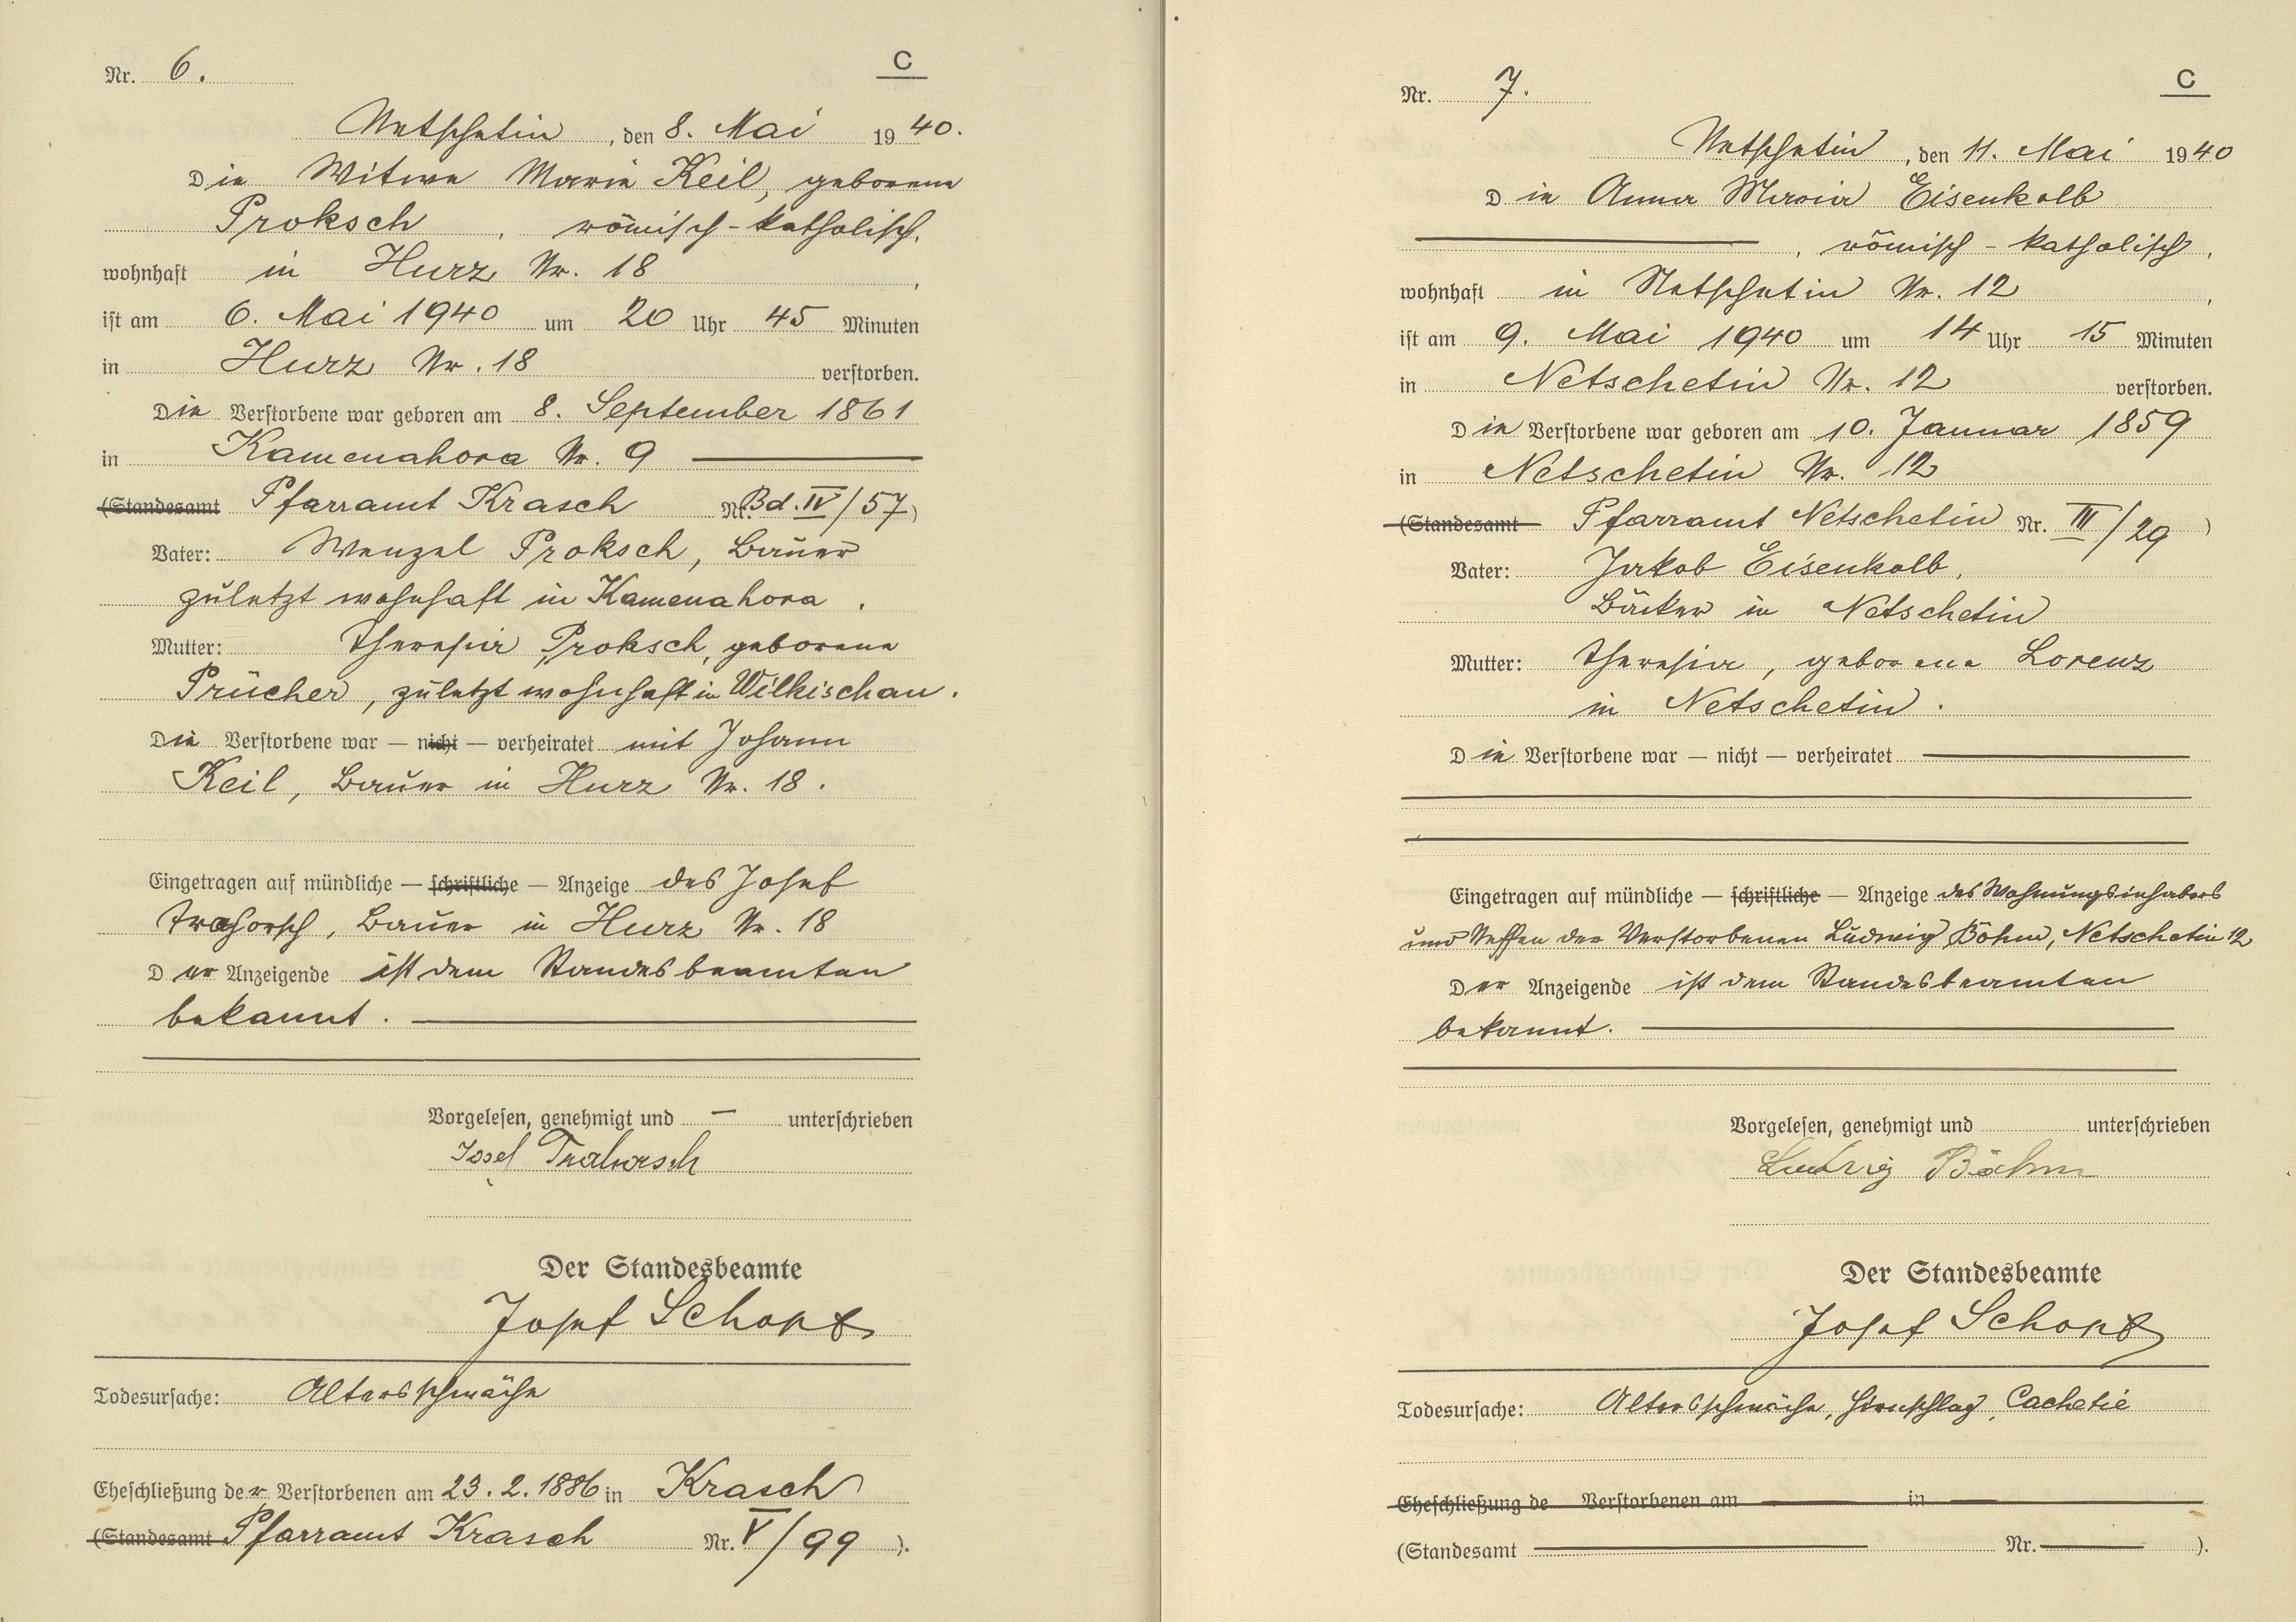 Nr. 6.
C
Netschetin, den 8. Mai 1940.
Die Witwe Marie Keil, geborene
Proksch, römisch-katholisch,
wohnhaft in Hurz Nr. 18,
ist am 6. Mai 1940 um 20 Uhr 45 Minuten
in Hurz Nr. 18 verstorben.
Die Verstorbene war geboren am 8. September 1861
in Kamenahora Nr. 9
(Standesamt Pfarramt Krasch Nr. Bd. IV/57)
Vater: Wenzel Proksch, Bauer
zuletzt wohnhaft in Kamenahora.
Mutter: Theresia Proksch, geborene
Prücher, zuletzt wohnhaft in Wilkischau.
Die Verstorbene war — nicht — verheiratet mit Johann
Keil, Bauer in Hurz Nr. 18.
Eingetragen auf mündliche — schriftliche — Anzeige des Josef
Trahorsch, Bauer in Hurz Nr. 18
Der Anzeigende ist dem Standesbeamten
bekannt.
Vorgelesen, genehmigt und — unterschrieben
Josef Trahorsch
Der Standesbeamte
Josef Schopf
Todesursache: Altersschwäche
Eheschließung der Verstorbenen am 23. 2. 1886 in Krasch
(Standesamt Pfarramt Krasch Nr. V/99).
Nr. 7.
C
Netschetin, den 11. Mai 1940
Die Anna Maria Eisenkolb
, römisch-katholisch,
wohnhaft in Netschetin Nr. 12,
ist am 9. Mai 1940 um 14 Uhr 15 Minuten
in Netschetin Nr. 12 verstorben.
Die Verstorbene war geboren am 10. Januar 1859
in Netschetin Nr. 12
(Standesamt Pfarramt Netschetin Nr. III/29)
Vater: Jakob Eisenkolb,
Bäcker in Netschetin
Mutter: Theresia, geborene Lorenz
in Netschetin.
Die Verstorbene war — nicht — verheiratet
Eingetragen auf mündliche — schriftliche — Anzeige des Wohnungsinhabers
und Neffen der Verstorbenen Ludwig Böhm, Netschetin 12
Der Anzeigende ist dem Standesbeamten
bekannt.
Vorgelesen, genehmigt und unterschrieben
Ludwig Böhm
Der Standesbeamte
Josef Schopf
Todesursache: Altersschwäche, Hirnschlag, Cachetie
Eheschließung de Verstorbenen am in
(Standesamt Nr. ).